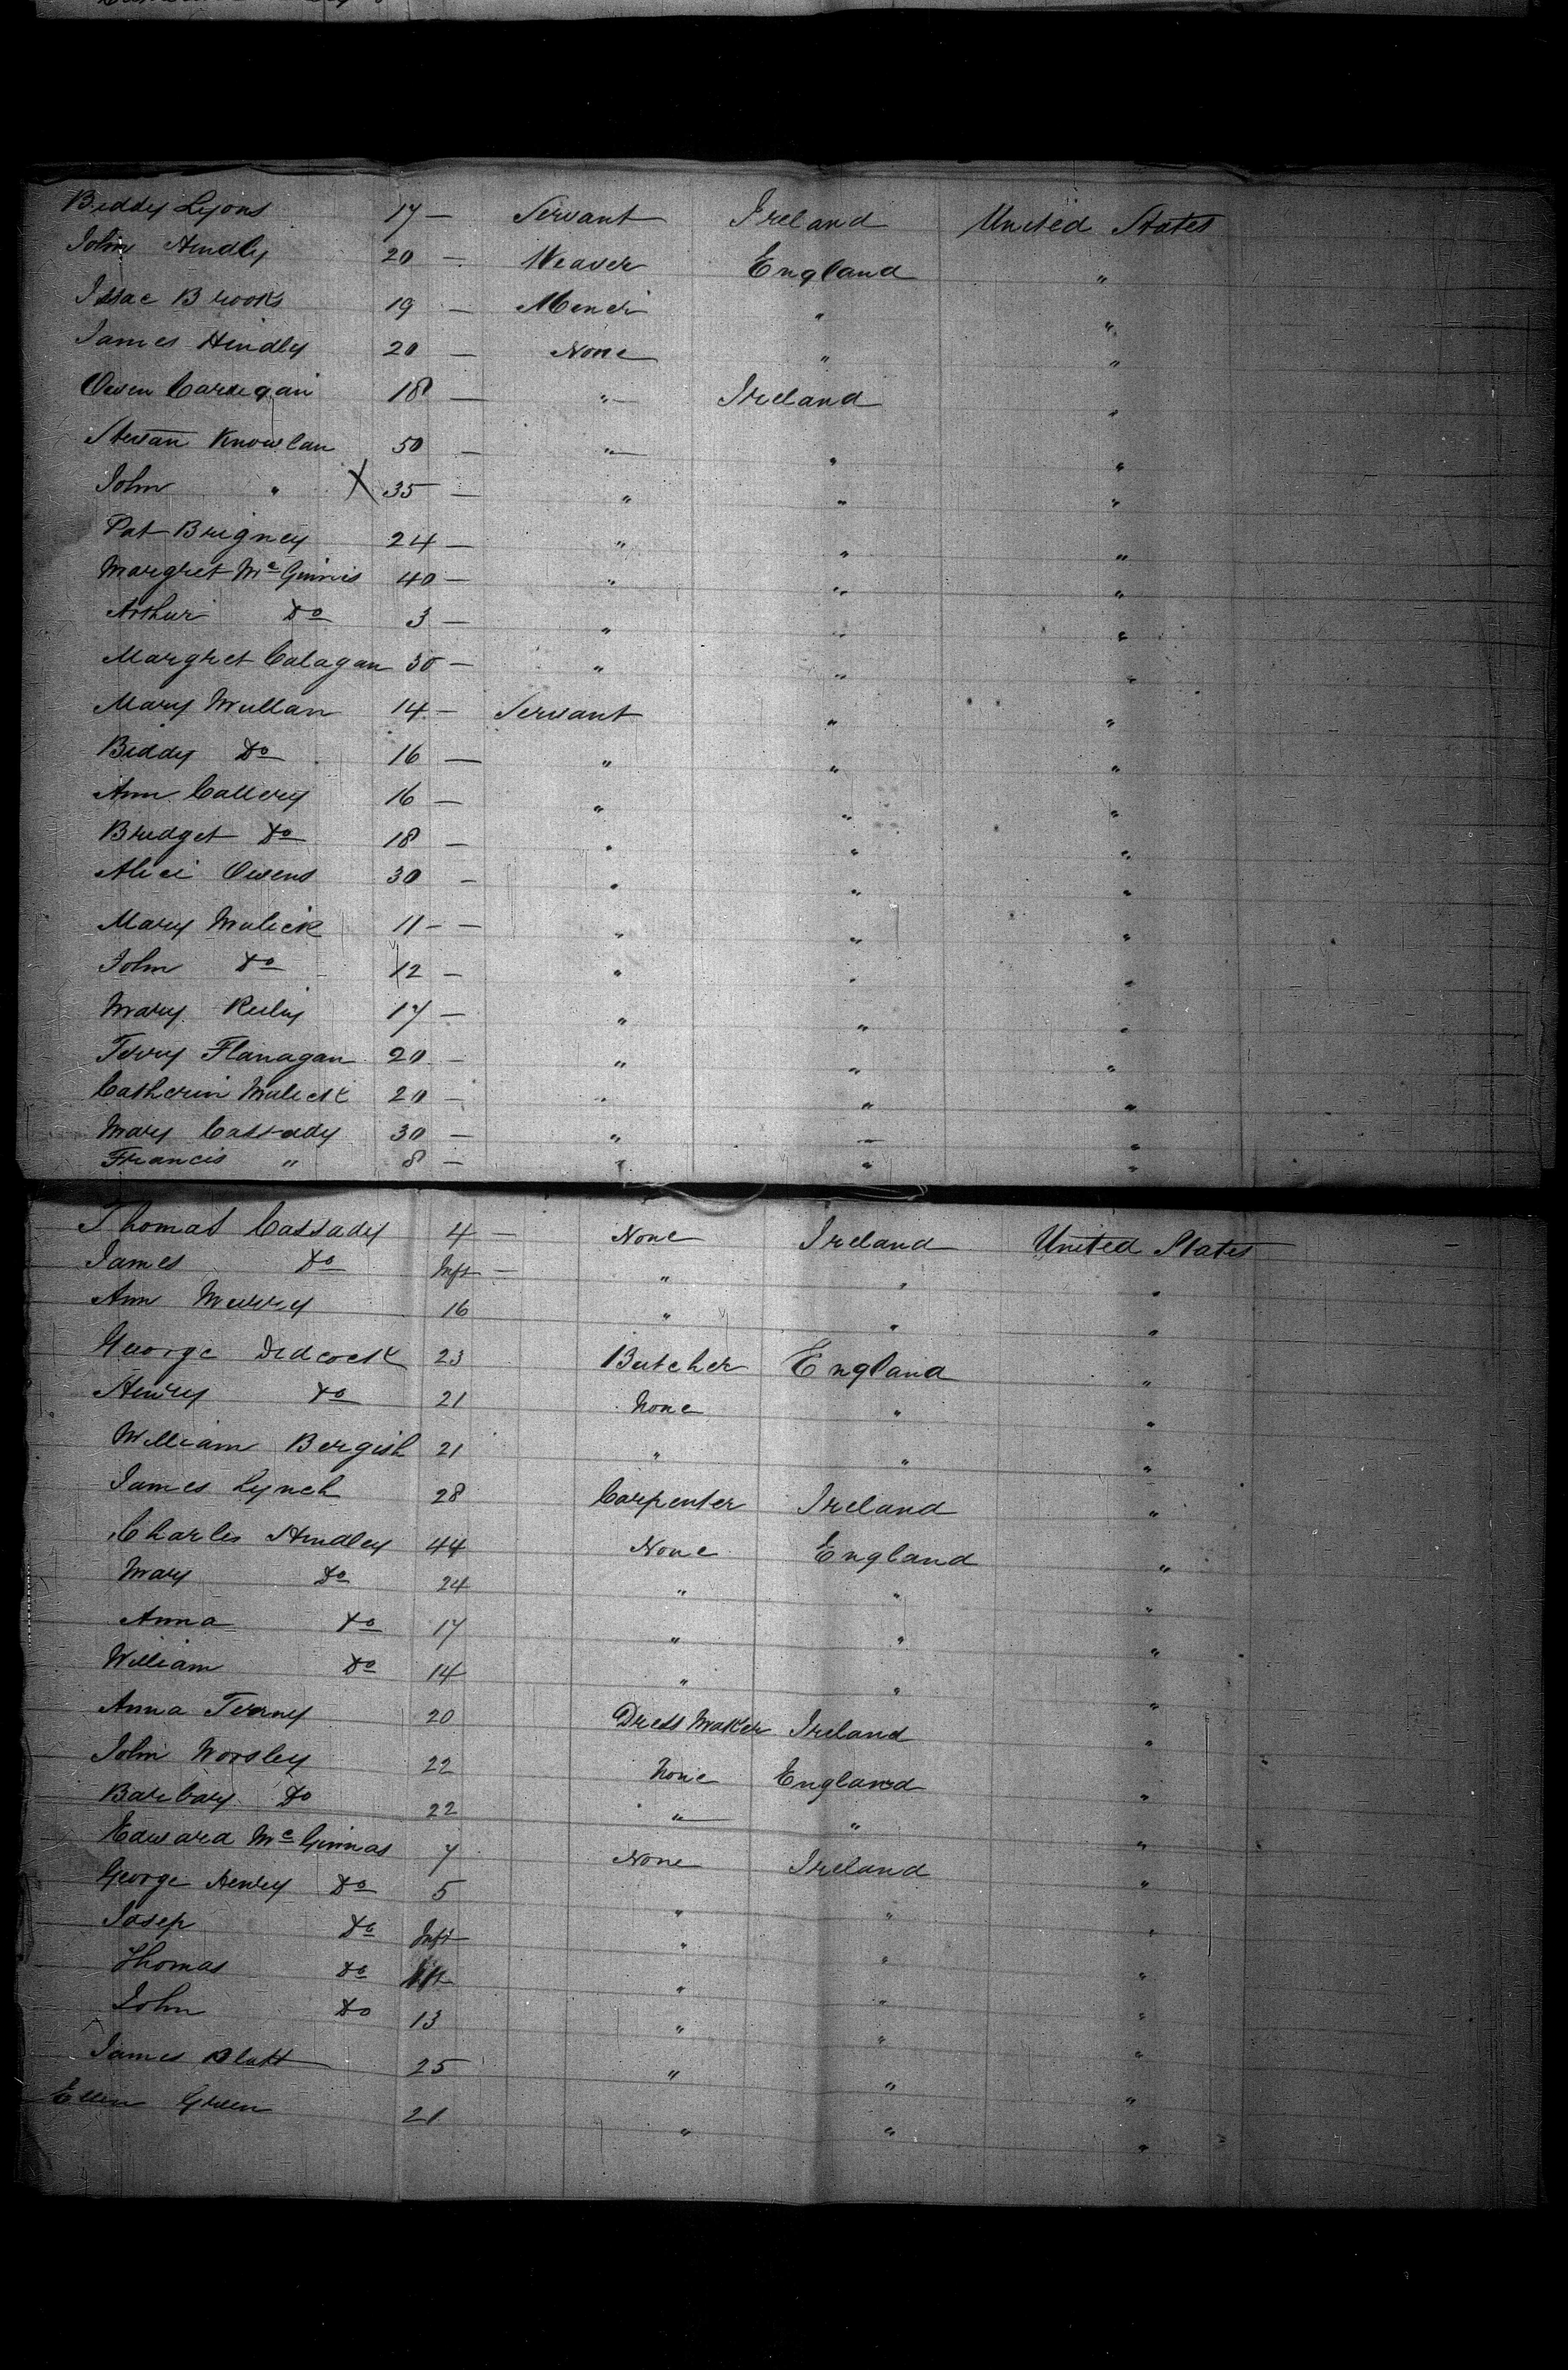 Biddy Lyons 17 — Servant Ireland United States
John Hindley 20 — Weaver England "
Issac Brooks 19 — "  "
James Hindley 20 — None " "
Owen Carregan 18 — " Ireland "
Knowlan 50 — " " "
John " X 35 — " " "
Pat Brigney 24 — " " "
Margret McGinnis 40 — " " "
Arthur Do 3 — " " "
Margret Calagan 30 — " " "
Mary Mullan 14 — Servant " "
Biddy Do 16 — " " "
Ann Callery 16 — " " "
Bridget Do 18 — " " "
Alice Owens 30 — " " "
Mary Mulick 11 - — " " "
John Do 12 — " " "
Mary Reily 17 — " " "
Terry Flanagan 20 — " " "
Catherin Mulick 20 — " " "
Mary Cassady 30 — " " "
Francis " 8 — " " "
Thomas Cassady 4 — None Ireland United States
James Do Inft — " " "
Ann Murry 16 " " "
George Didcock 23 Butcher England "
Henry Do 21 None " "
William Bergish 21 " " "
James Lynch 28 Carpenter Ireland "
Charles Hindley 44 None England "
Mary Do 24 " " "
Anna Do 17 " " "
William Do 14 " " "
Anna Terney 20 Dress Maker Ireland "
John Worsley 22 None England "
Barbary Do 22 " " "
Edward McGinnas 7 None Ireland "
George Henry Do 5 " " "
Josep Do Inft " " "
Thomas Do " " "
John Do 13 " " "
James Blatt 25 " " "
Ellen Green 21 " " "